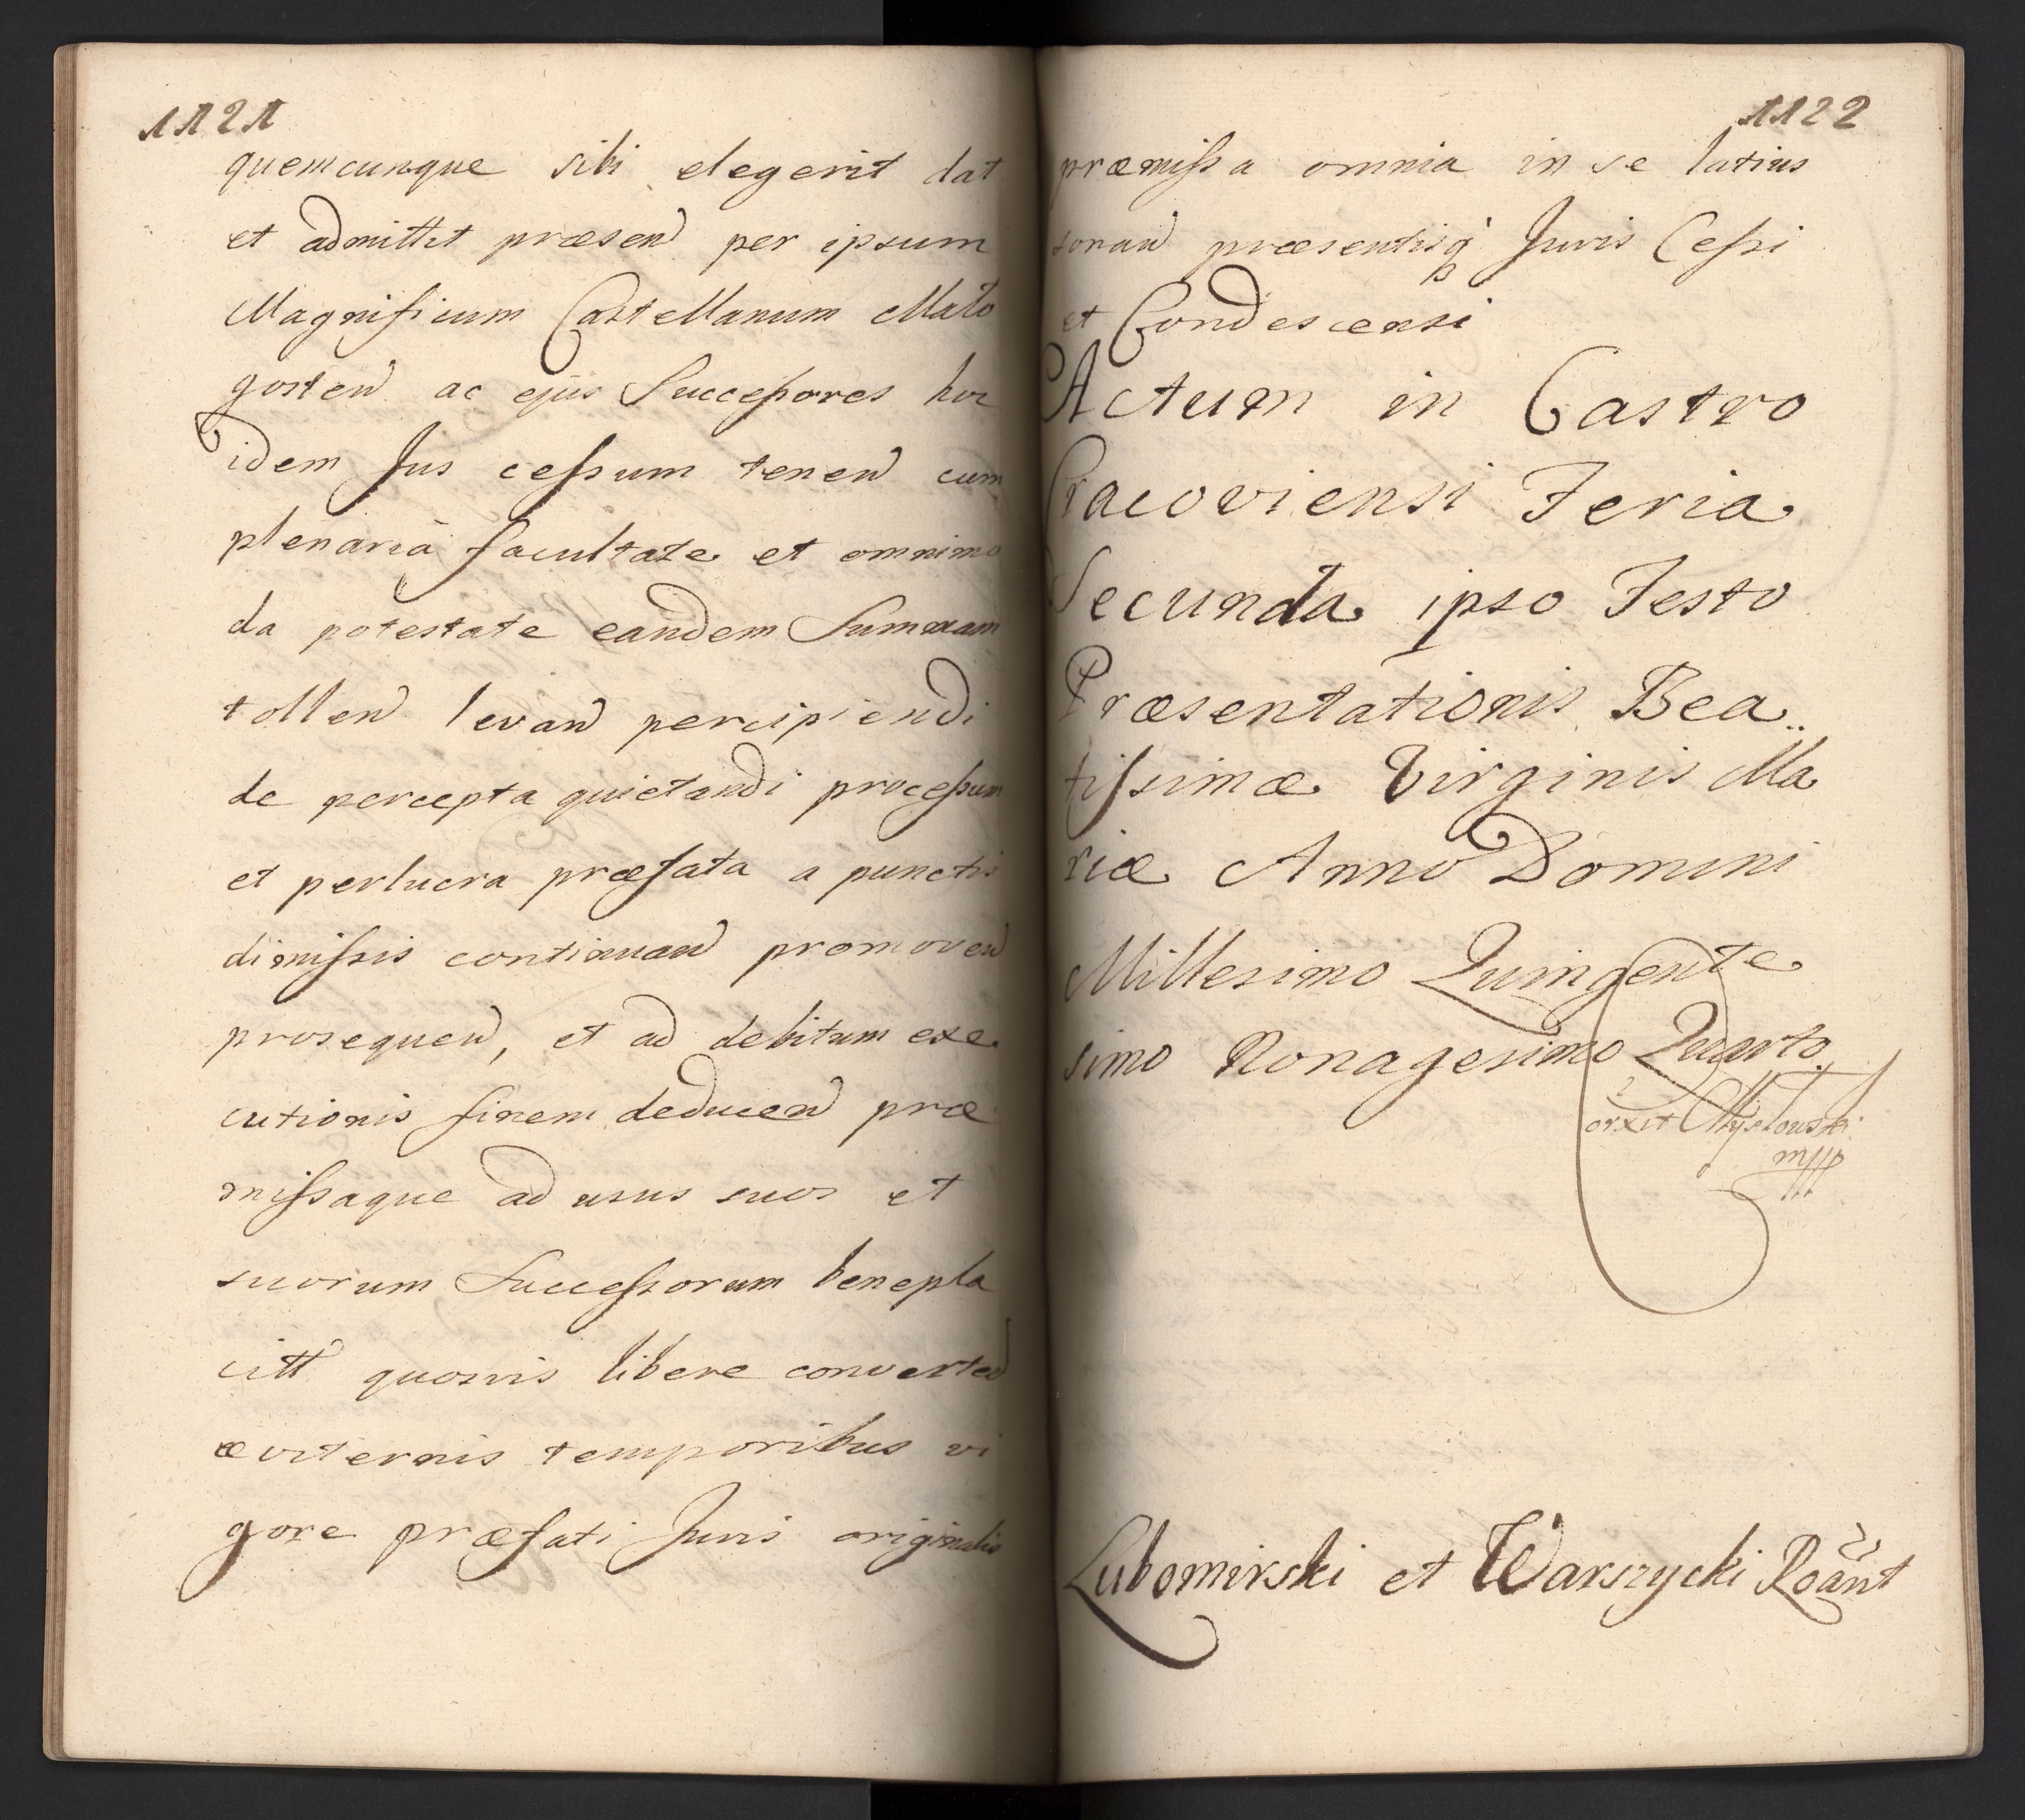 1121
quemcunque sibi elegerit dat
et admittit præsen per ipsum
Magnificum Castellanum Malo
gosten ac ejus Successores hoc
idem Jus cessum tenen cum
plenaria facultate et omnimo
da potestate eandem Summam
tollen levan percipiendi
de percepta quietandi processum
et perlucra præfata a punctis
dimissis continuan promoven
prosequen, et ad debitum exe
cutionis finem deducen præ
missaque ad usus suos et
suorum Successorum benepla
citt quosvis libere converten
æviternis temporibus vi
gore præfati Juris originalis
1122
præmissa omnia in se latius
sonan præsentisq Juris Cessi
et Condescensi
Actum in Castro
Cracoviensi Feria
Secunda ipso Festo
Præsentationis Bea
tissimæ Virginis Ma
riæ Anno Domini
Millesimo Quingente
simo Nonagesimo Quarto
Lubomirski et Warszycki Roānt